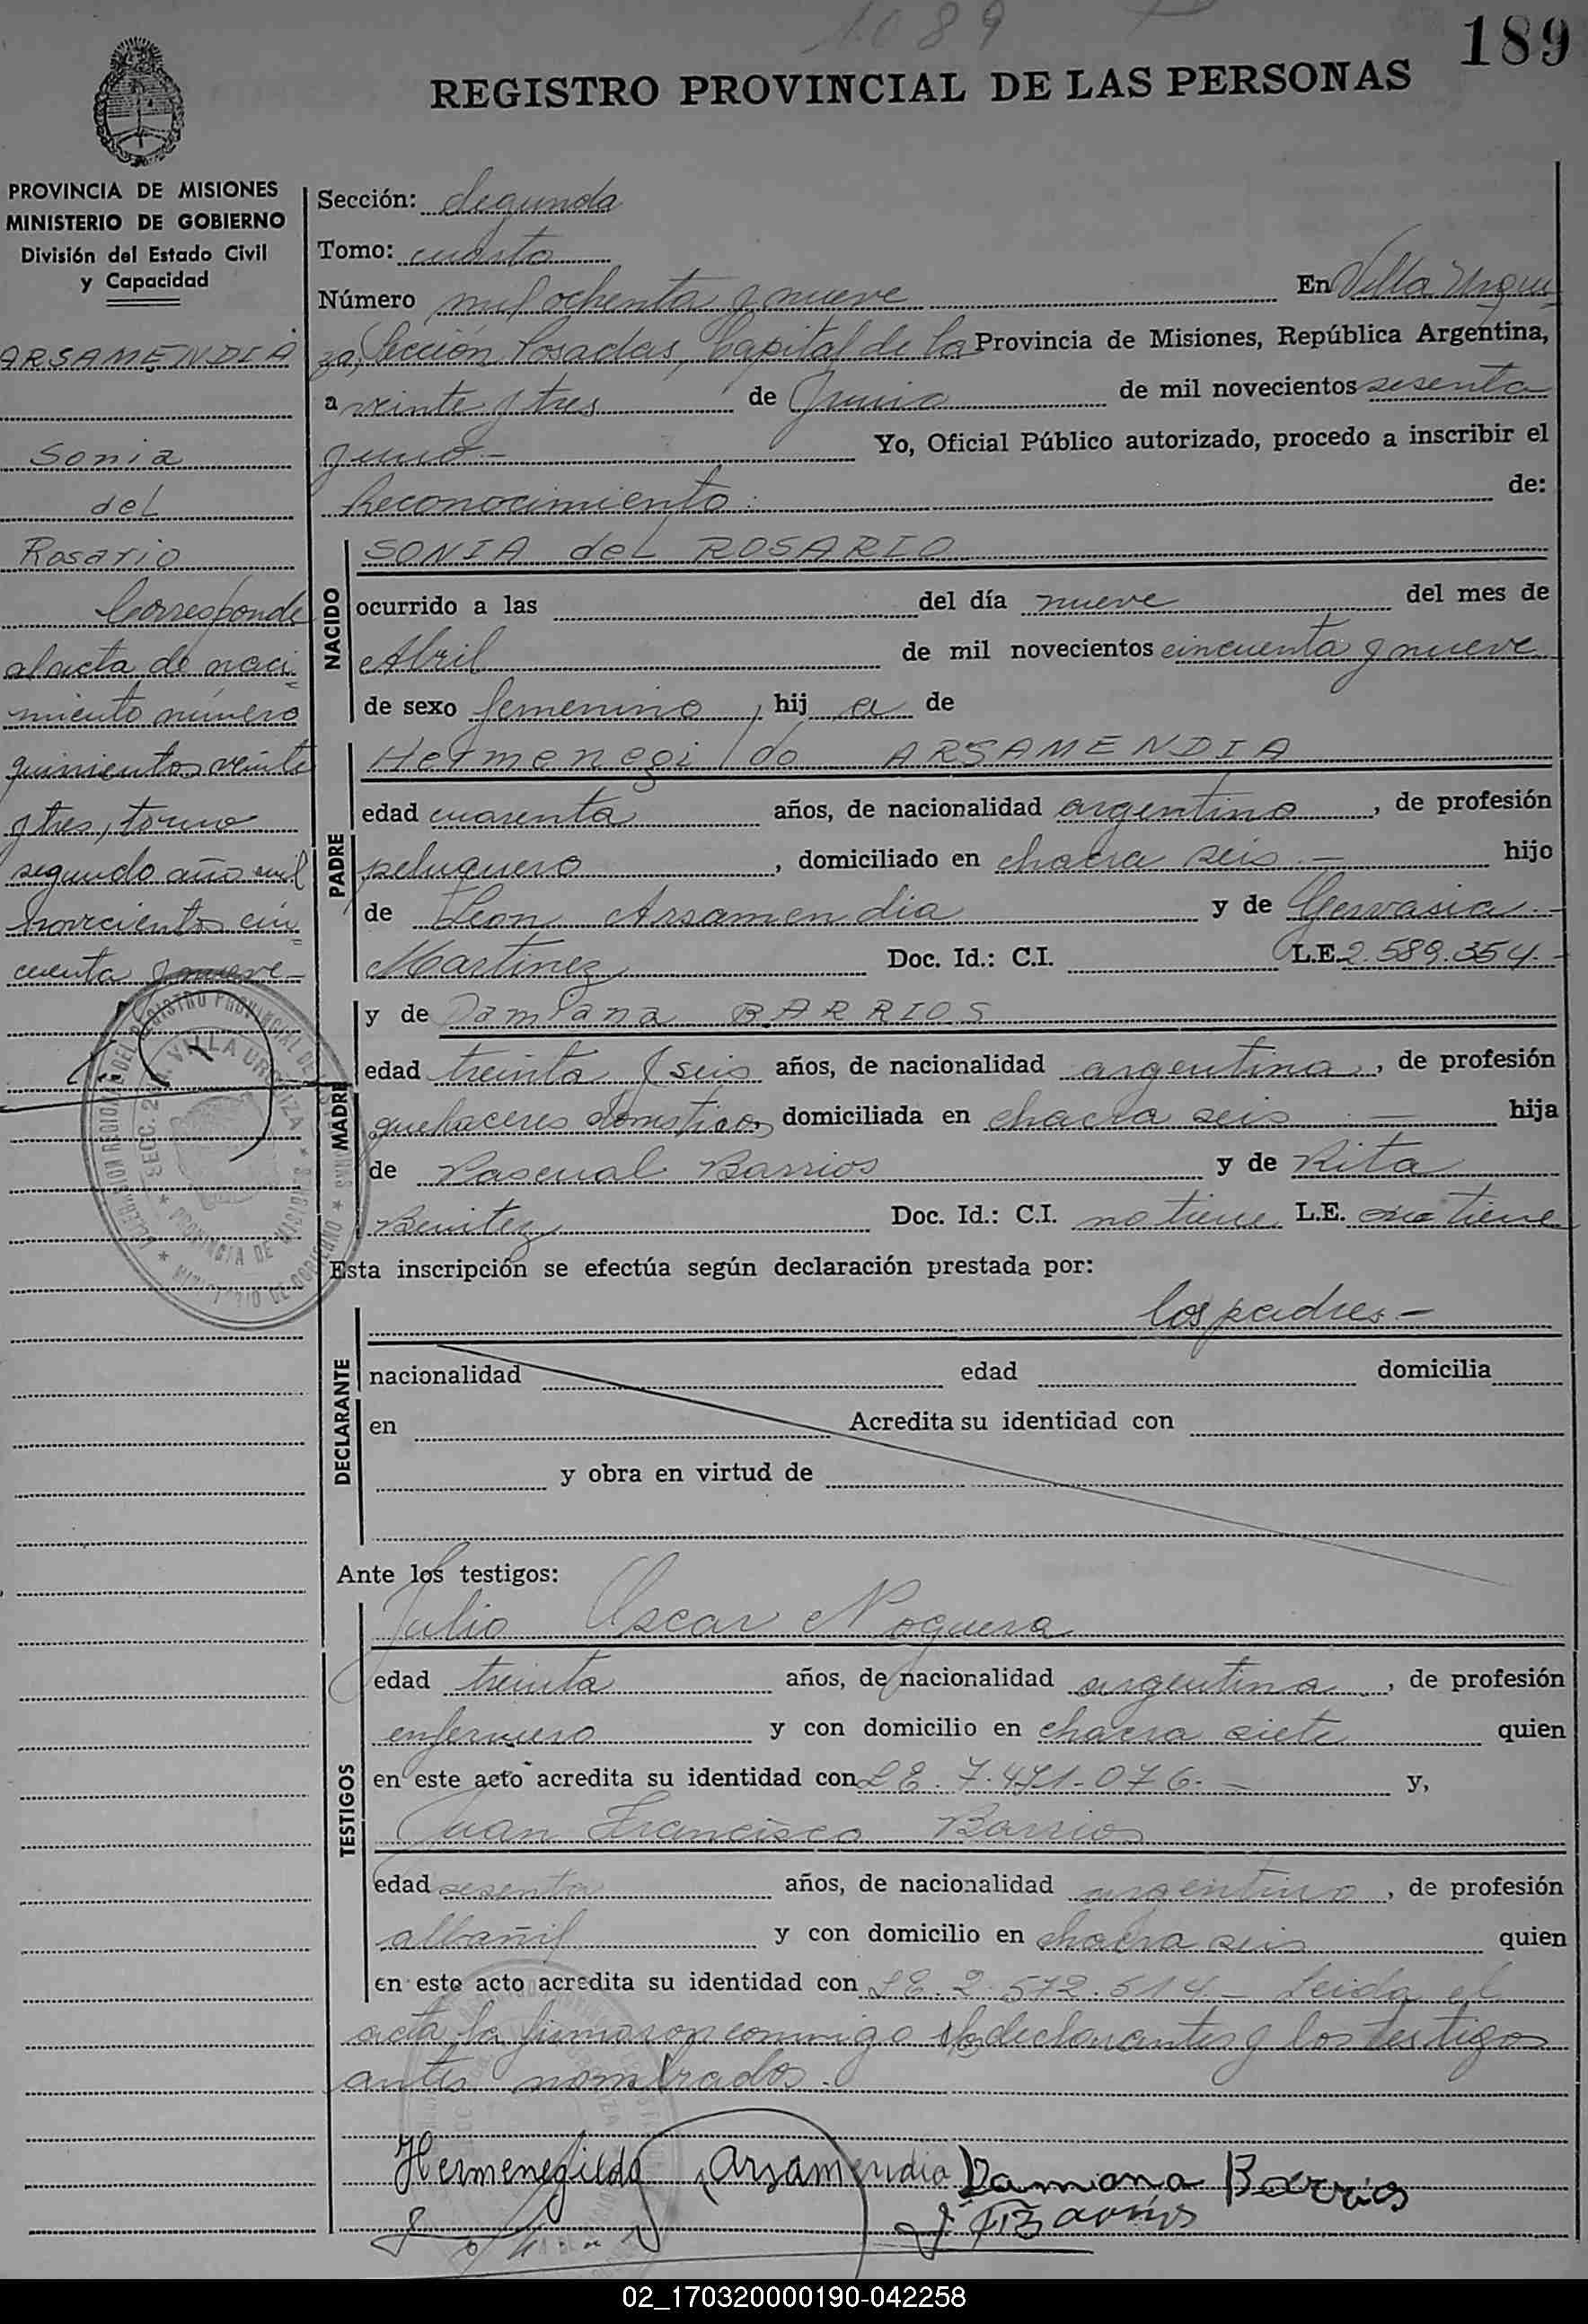 1089
189
REGISTRO PROVINCIAL DE LAS PERSONAS
PROVINCIA DE MISIONES
MINISTERIO DE GOBIERNO
División del Estado Civil
y Capacidad
ARSAMENDIA
Sonia
del
Rosario
Corresponde
al acta de naci
miento número
quinientos veinte
y tres, tomo
segundo año mil
novecientos cin
cuenta y nueve
Sección: Segunda
Tomo: cuarto
Número mil ochenta y nueve En Villa Urqui
za, Sección Posadas, Capital de la Provincia de Misiones, República Argentina,
a veinte y tres de Junio de mil novecientos sesenta
y uno - Yo, Oficial Público autorizado, procedo a inscribir el
Reconocimiento de:
NACIDO
SONIA del ROSARIO
ocurrido a las del día nueve del mes de
Abril de mil novecientos cincuenta y nueve
de sexo femenino, hij a de
PADRE
Hermenegildo ARSAMENDIA
edad cuarenta años, de nacionalidad argentino, de profesión
peluquero, domiciliado en chacra seis.- hijo
de Leon Arsamendia y de Gervasia
Martinez Doc. Id.: C.I. L.E. 2.589.354.-
MADRE
y de Damiana BARRIOS
edad treinta y seis años, de nacionalidad argentina, de profesión
quehaceres domesticos domiciliada en chacra seis - hija
de Pascual Barrios y de Rita
Benitez Doc. Id.: C.I. no tiene L.E. no tiene
Esta inscripción se efectúa según declaración prestada por:
DECLARANTE
los padres -
nacionalidad edad domicilia
en Acredita su identidad con
y obra en virtud de
Ante los testigos:
TESTIGOS
Julio Oscar Noguera
edad treinta años, de nacionalidad argentina, de profesión
enfermero y con domicilio en chacra siete quien
en este acto acredita su identidad con L E. 7.471.076.- y,
Juan Francisco Barrios
edad sesenta años, de nacionalidad argentino, de profesión
albañil y con domicilio en chacra seis quien
en este acto acredita su identidad con L E. 2.572.514 - Leida el
acta la firmaron conmigo declarantes y los testigos
antes nombrados.
Hermenegildo Arsamendia Damiana Barrios
J F Barrios
02_170320000190-042258